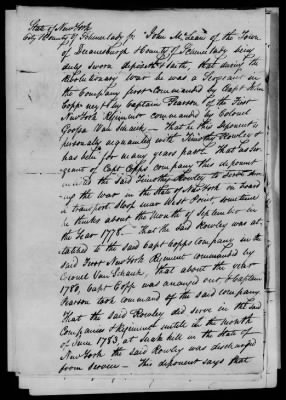 State of New York
City & County of Schenectady ss John McLean of the Town
of Duanesburgh & County of Schenectady being
duly sworn deposeth & saith, that during the
Revolutionary War he was a Sergeant in
the Company first commanded by Capt John
Copp next by Captain Pearson of the First
New York Regiment commanded by Colonel
Goosen Van Schaick — that he this deponent is
personally acquainted with Timothy Rowley &
has been for many years past. That as Ser
geant of Capt Copps company this deponent
the said Timothy Rowley to serve during
the war in the State of New York on board
a transport Sloop near West Point sometime
he thinks about the Month of September in
the Year 1778 — That the said Rowley was at
tached to the said Capt Copps Company in the
said First New York Regiment commanded by
Colonel Van Schaick, that about the year
1780, Capt Copp was and Captain
Pearson took command of the said company
That the said Rowley did serve in the said
Companies & Regiment until in the month
of June 1783, at Snake hill in the State of
New York the said Rowley was discharged
from service — This deponent says that